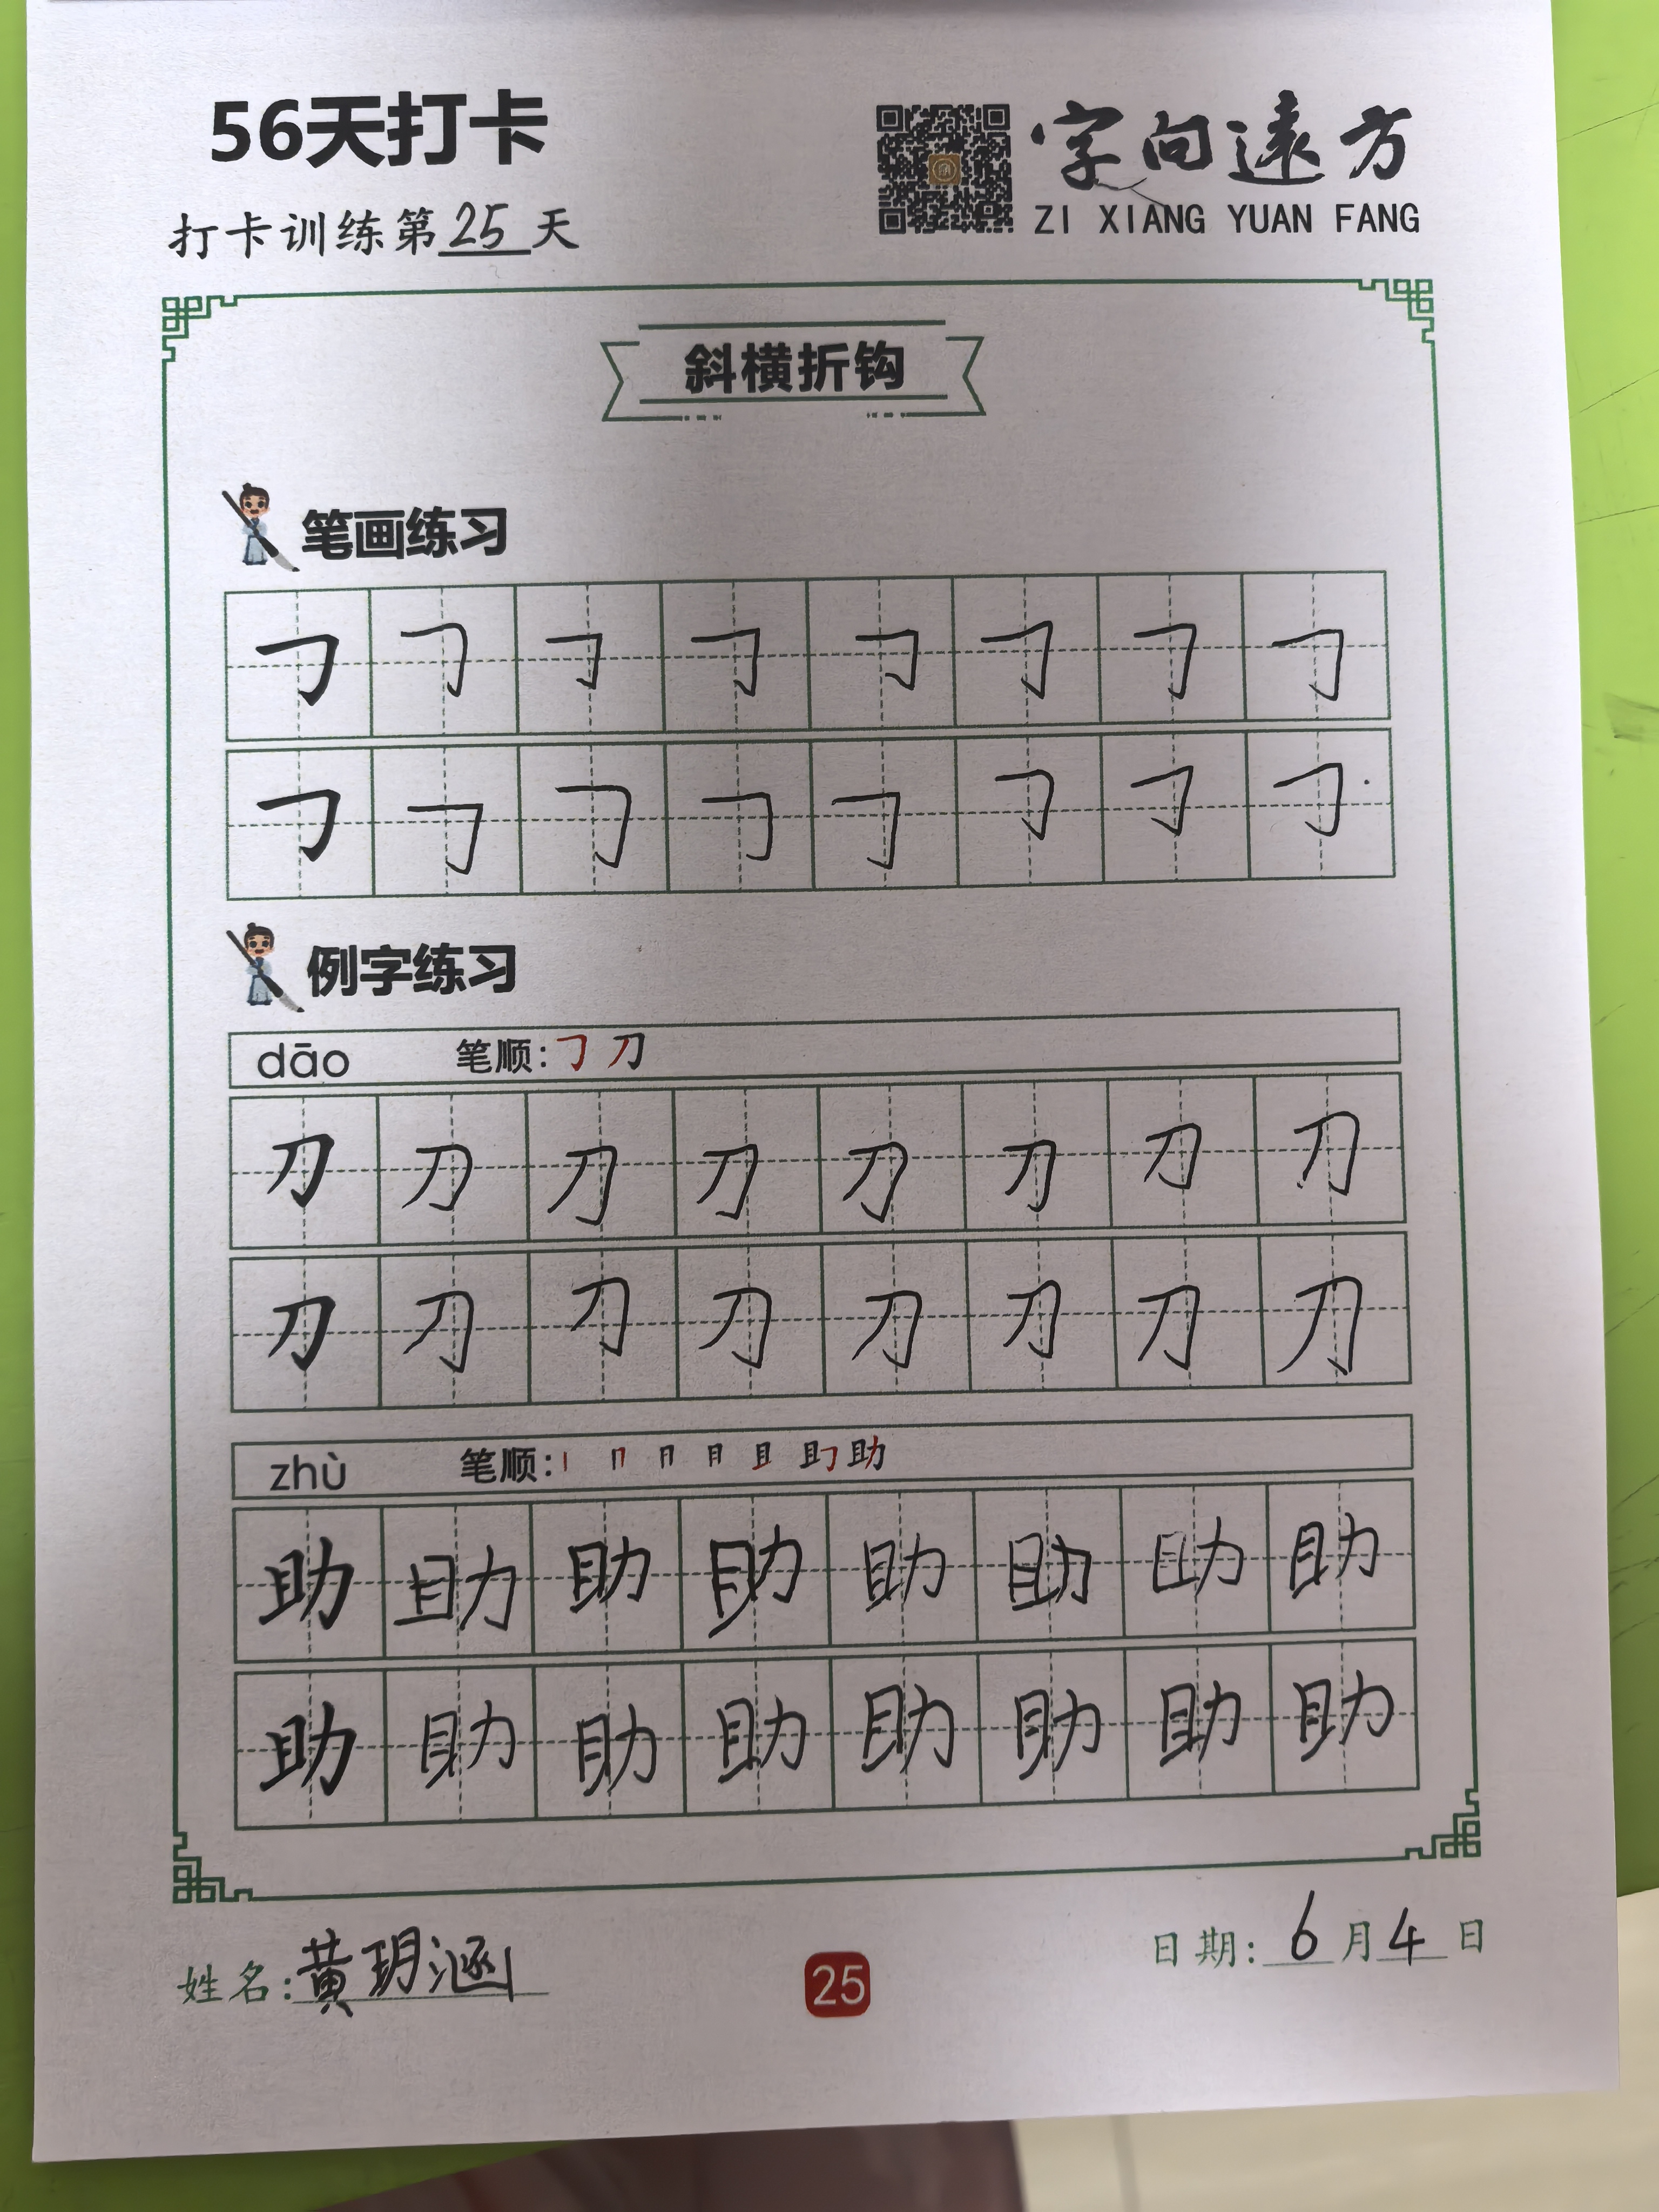 56天打卡
字向遠方
打卡训练第25天
ZI XIANG YUAN FANG
斜横折钩
笔画练习
㇆ ㇆ ㇆ ㇆ ㇆ ㇆ ㇆ ㇆
㇆ ㇆ ㇆ ㇆ ㇆ ㇆ ㇆ ㇆
例字练习
dāo 笔顺:㇆ 刀
刀 刀 刀 刀 刀 刀 刀 刀
刀 刀 刀 刀 刀 刀 刀 刀
zhù 笔顺: 助
助 助 助 助 助 助 助 助
助 助 助 助 助 助 助 助
姓名:黄玥涵
25
日期:6月4日